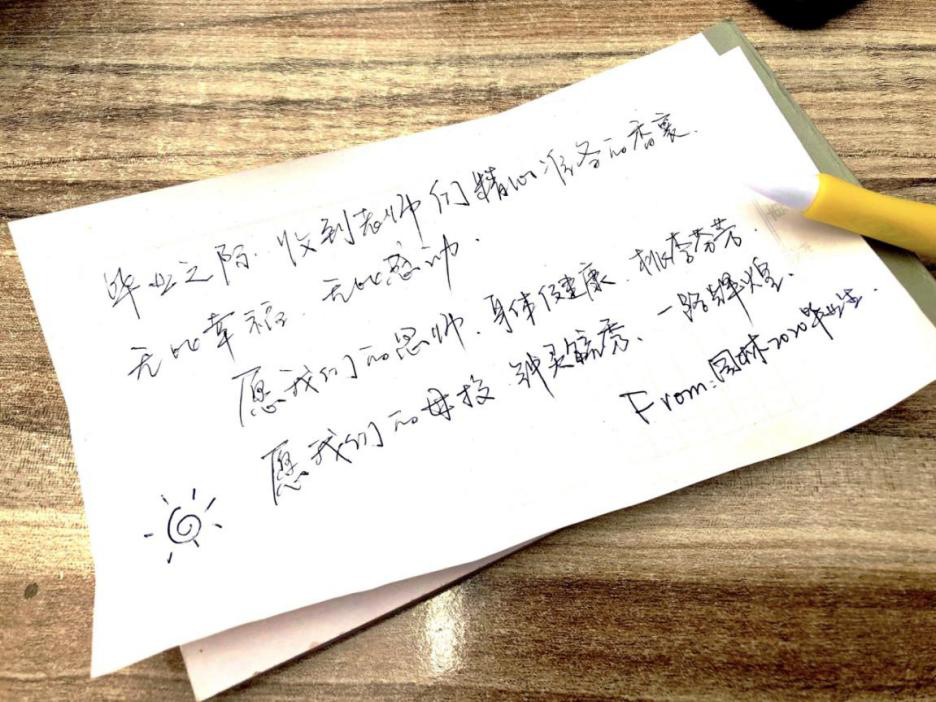 毕业之际,收到老师们精心准备的香囊.
无比幸福.无比感动.
愿我们的恩师.身体健康.桃李芬芳.
愿我们的母校 钟灵毓秀、一路辉煌.
From:园林2020毕业生.